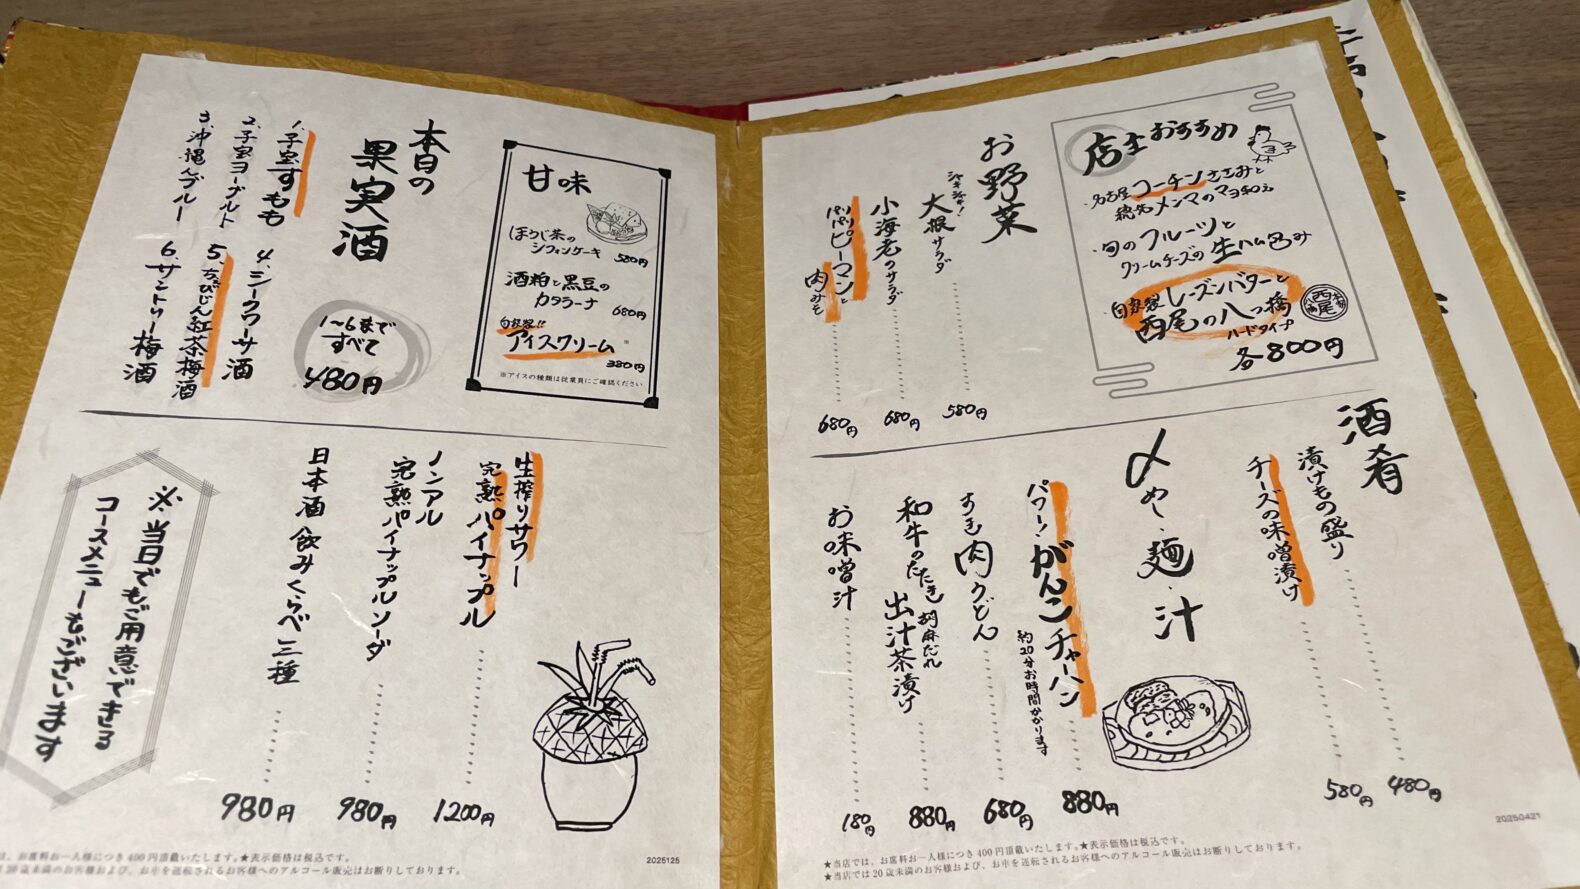 店主おすすめ
・名古屋コーチンささみと
穂先メンマのマヨ和え
・旬のフルーツと
クリームチーズの生ハム包み
自家製レーズンバターと
西尾の八つ橋
ハードタイプ
各800円
お野菜
シャキシャキ!
大根サラダ
580円
小海老のサラダ
680円
パリパリピーマンと
肉みそ
680円
酒肴
漬けもの盛り
480円
チーズの味噌漬け
580円
〆めし・麺・汁
パワー!がんこチャーハン
約20分お時間かかります
880円
すき肉うどん
680円
和牛のたたき胡麻だれ
出汁茶漬け
880円
お味噌汁
180円
20250421
★当店では、お席料お一人様につき400円頂戴いたします。★表示価格は税込です。
★当店では20歳未満のお客様および、お車を運転されるお客様へのアルコール販売はお断りしております。
甘味
ほうじ茶の
シフォンケーキ
580円
酒粕と黒豆の
カタラーナ
680円
自家製!!
アイスクリーム※
380円
※アイスの種類は従業員にご確認ください
本日の
果実酒
1〜6まで
すべて
480円
1.子宝すもも
2.子宝ヨーグルト
3.沖縄ブルー
4.シークワーサ酒
5.ちょびじん紅茶梅酒
6.サントリー梅酒
生搾りサワー
完熟パイナップル
1200円
ノンアル
完熟パイナップルソーダ
980円
日本酒飲みくらべ三種
980円
※当日でもご用意できる
コースメニューもございます
2025125
は、お席料お一人様につき400円頂戴いたします。★表示価格は税込です。
20歳未満のお客様および、お車を運転されるお客様へのアルコール販売はお断りしております。